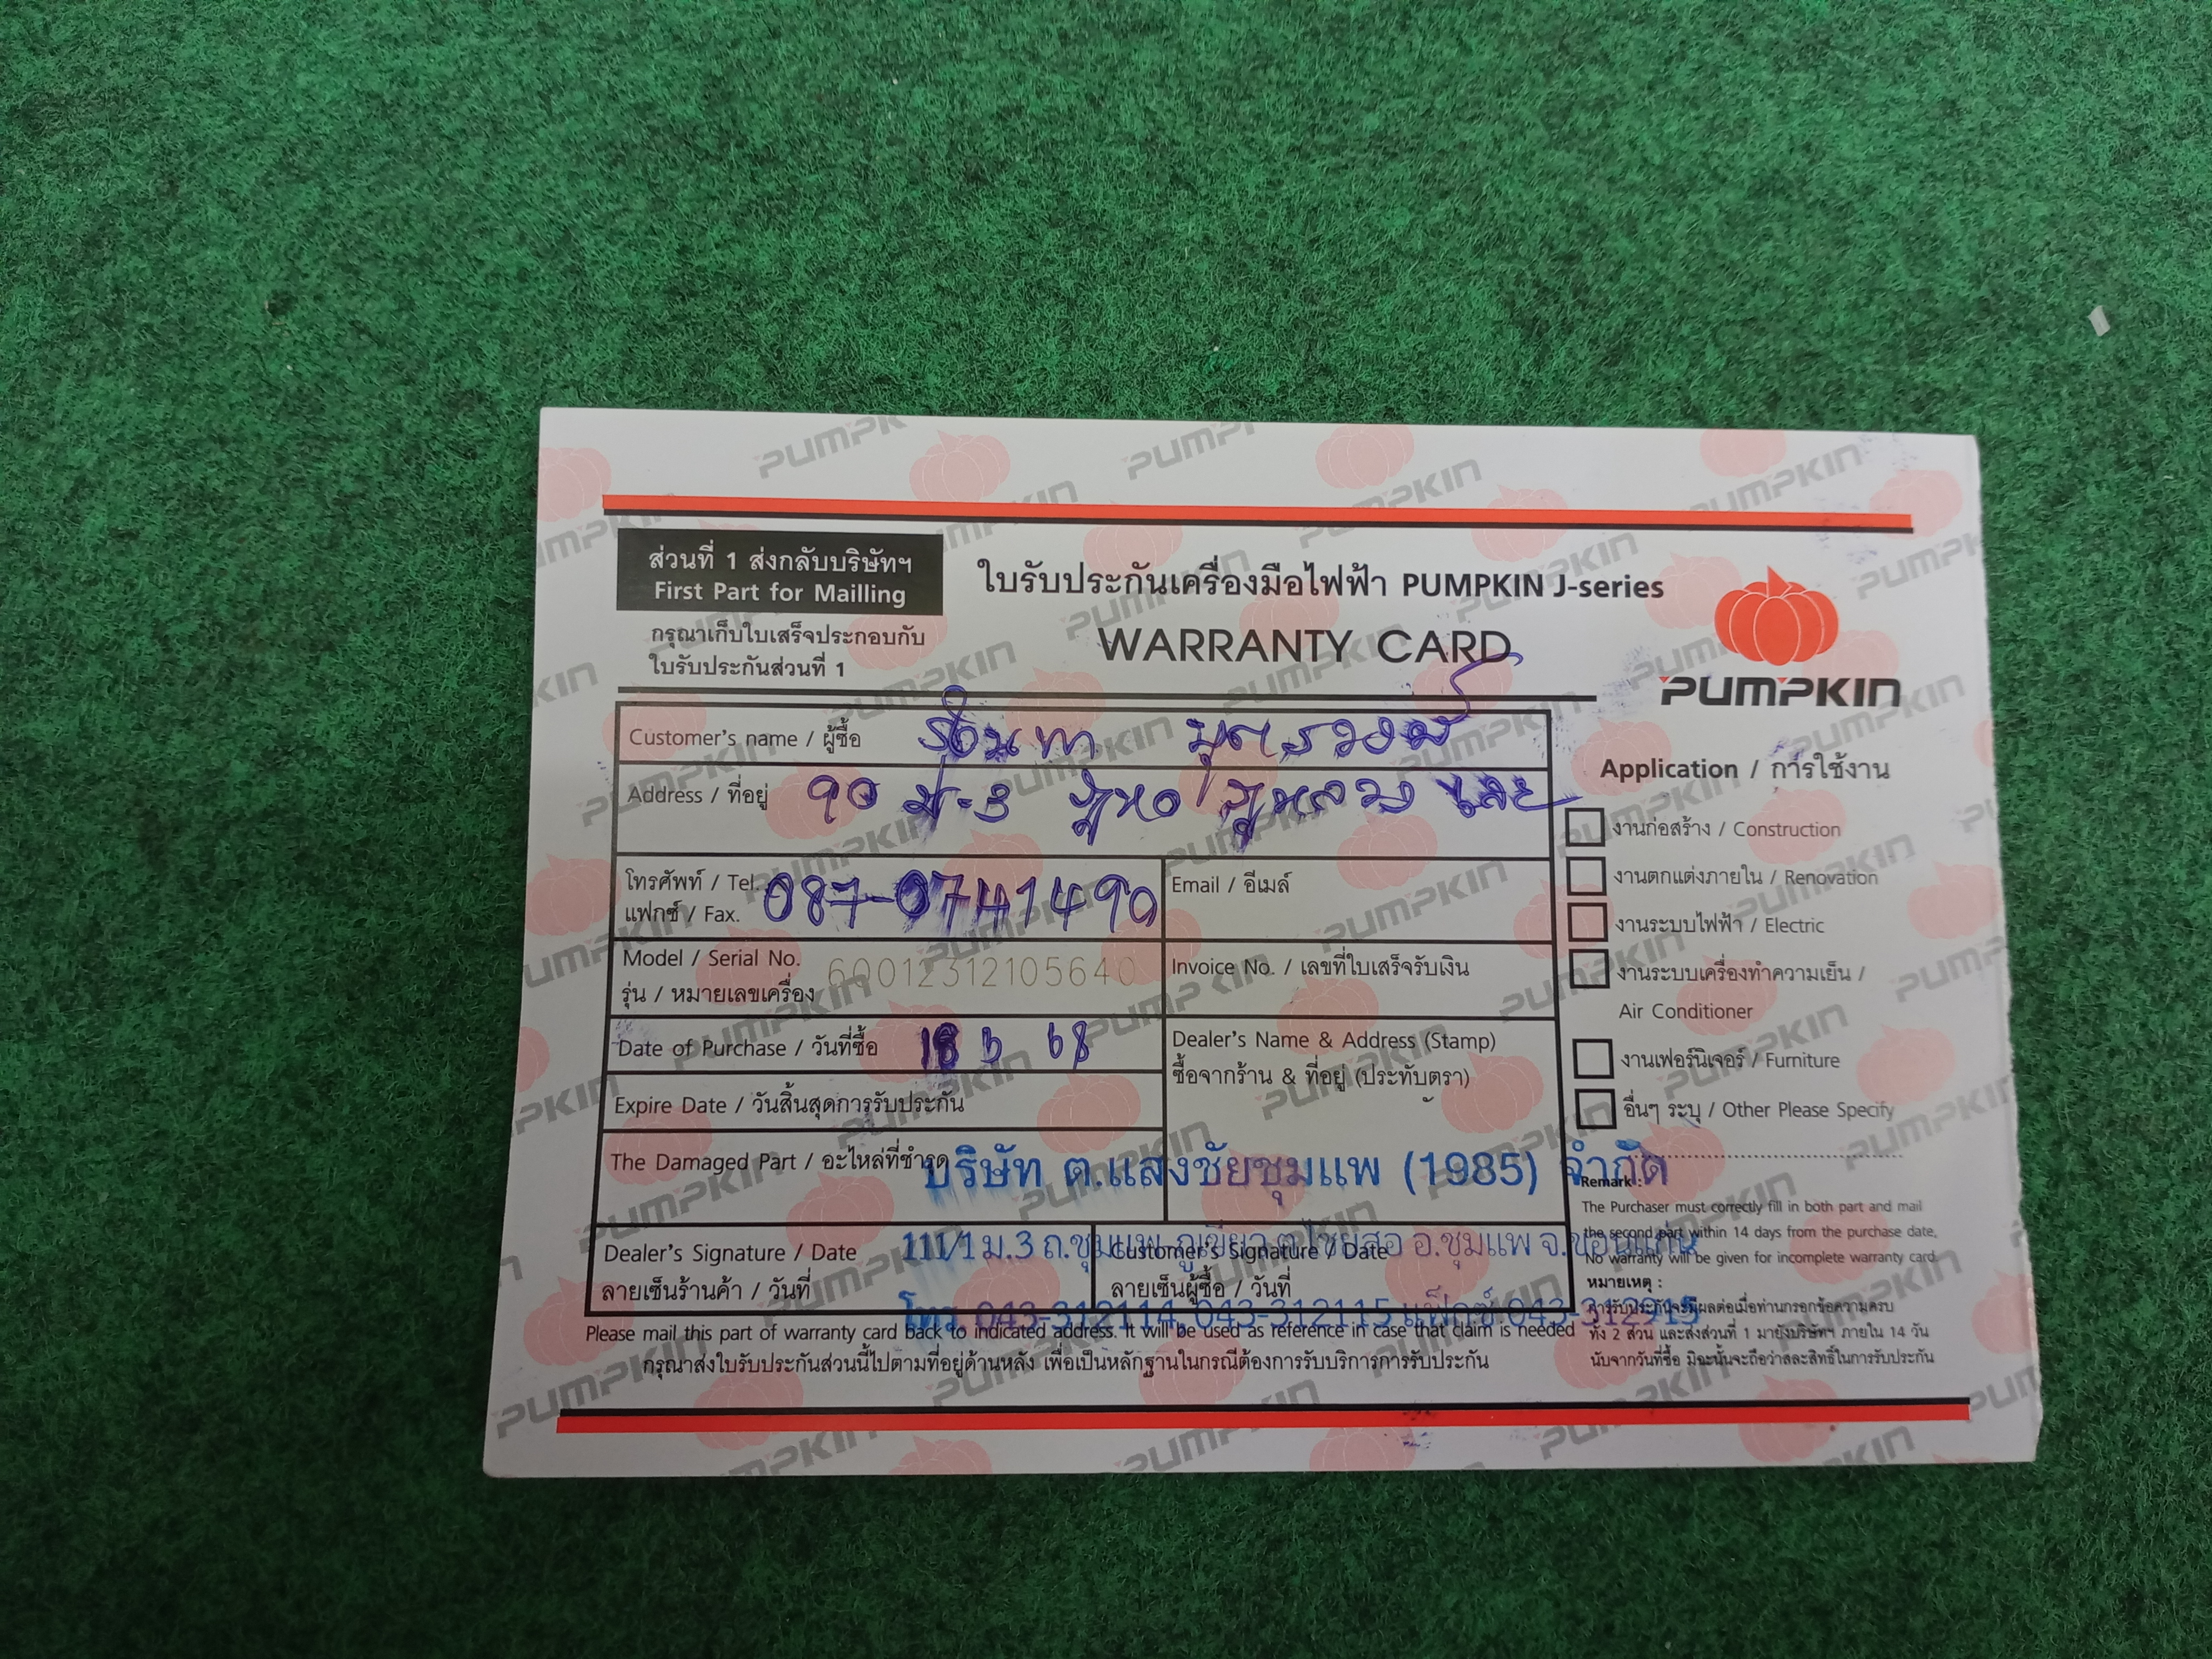 ส่วนที่ 1 ส่งกลับบริษัทฯ
First Part for Mailling
กรุณาเก็บใบเสร็จประกอบกับ
ใบรับประกันส่วนที่ 1
ใบรับประกันเครื่องมือไฟฟ้า PUMPKIN J-series
WARRANTY CARD
PUMPKIN
Customer's name / ผู้ซื้อ
Address / ที่อยู่ 90 ม-3 ภูหอ ภูหลวง เลย
โทรศัพท์ / Tel. 087-0741490
แฟกซ์ / Fax.
Email / อีเมล์
Model / Serial No. 60012312105640
รุ่น / หมายเลขเครื่อง
Invoice No. / เลขที่ใบเสร็จรับเงิน
Date of Purchase / วันที่ซื้อ 18 68
Expire Date / วันสิ้นสุดการรับประกัน
Dealer's Name & Address (Stamp)
ซื้อจากร้าน & ที่อยู่ (ประทับตรา)
The Damaged Part / อะไหล่ที่ชำรุด
บริษัท ต.แสงชัยชุมแพ (1985) จำกัด
111/1 ม.3 ถ.ชุมแพ-ภูเขียว ต.ไชยสอ อ.ชุมแพ จ.ขอนแก่น
โทร. 043-312114, 043-312115 แฟ็กซ์ 043-312915
Dealer's Signature / Date
ลายเซ็นร้านค้า / วันที่
Customer's Signature / Date
ลายเซ็นผู้ซื้อ / วันที่
Please mail this part of warranty card back to indicated address. It will be used as reference in case that claim is needed
กรุณาส่งใบรับประกันส่วนนี้ไปตามที่อยู่ด้านหลัง เพื่อเป็นหลักฐานในกรณีต้องการรับบริการการรับประกัน
Application / การใช้งาน
งานก่อสร้าง / Construction
งานตกแต่งภายใน / Renovation
งานระบบไฟฟ้า / Electric
งานระบบเครื่องทำความเย็น /
Air Conditioner
งานเฟอร์นิเจอร์ / Furniture
อื่นๆ ระบุ / Other Please Specify
Remark :
The Purchaser must correctly fill in both part and mail
the second part within 14 days from the purchase date,
No warranty will be given for incomplete warranty card.
หมายเหตุ :
การรับประกันจะมีผลต่อเมื่อท่านกรอกข้อความครบ
ทั้ง 2 ส่วน และส่งส่วนที่ 1 มายังบริษัทฯ ภายใน 14 วัน
นับจากวันที่ซื้อ มิฉะนั้นจะถือว่าสละสิทธิ์ในการรับประกัน